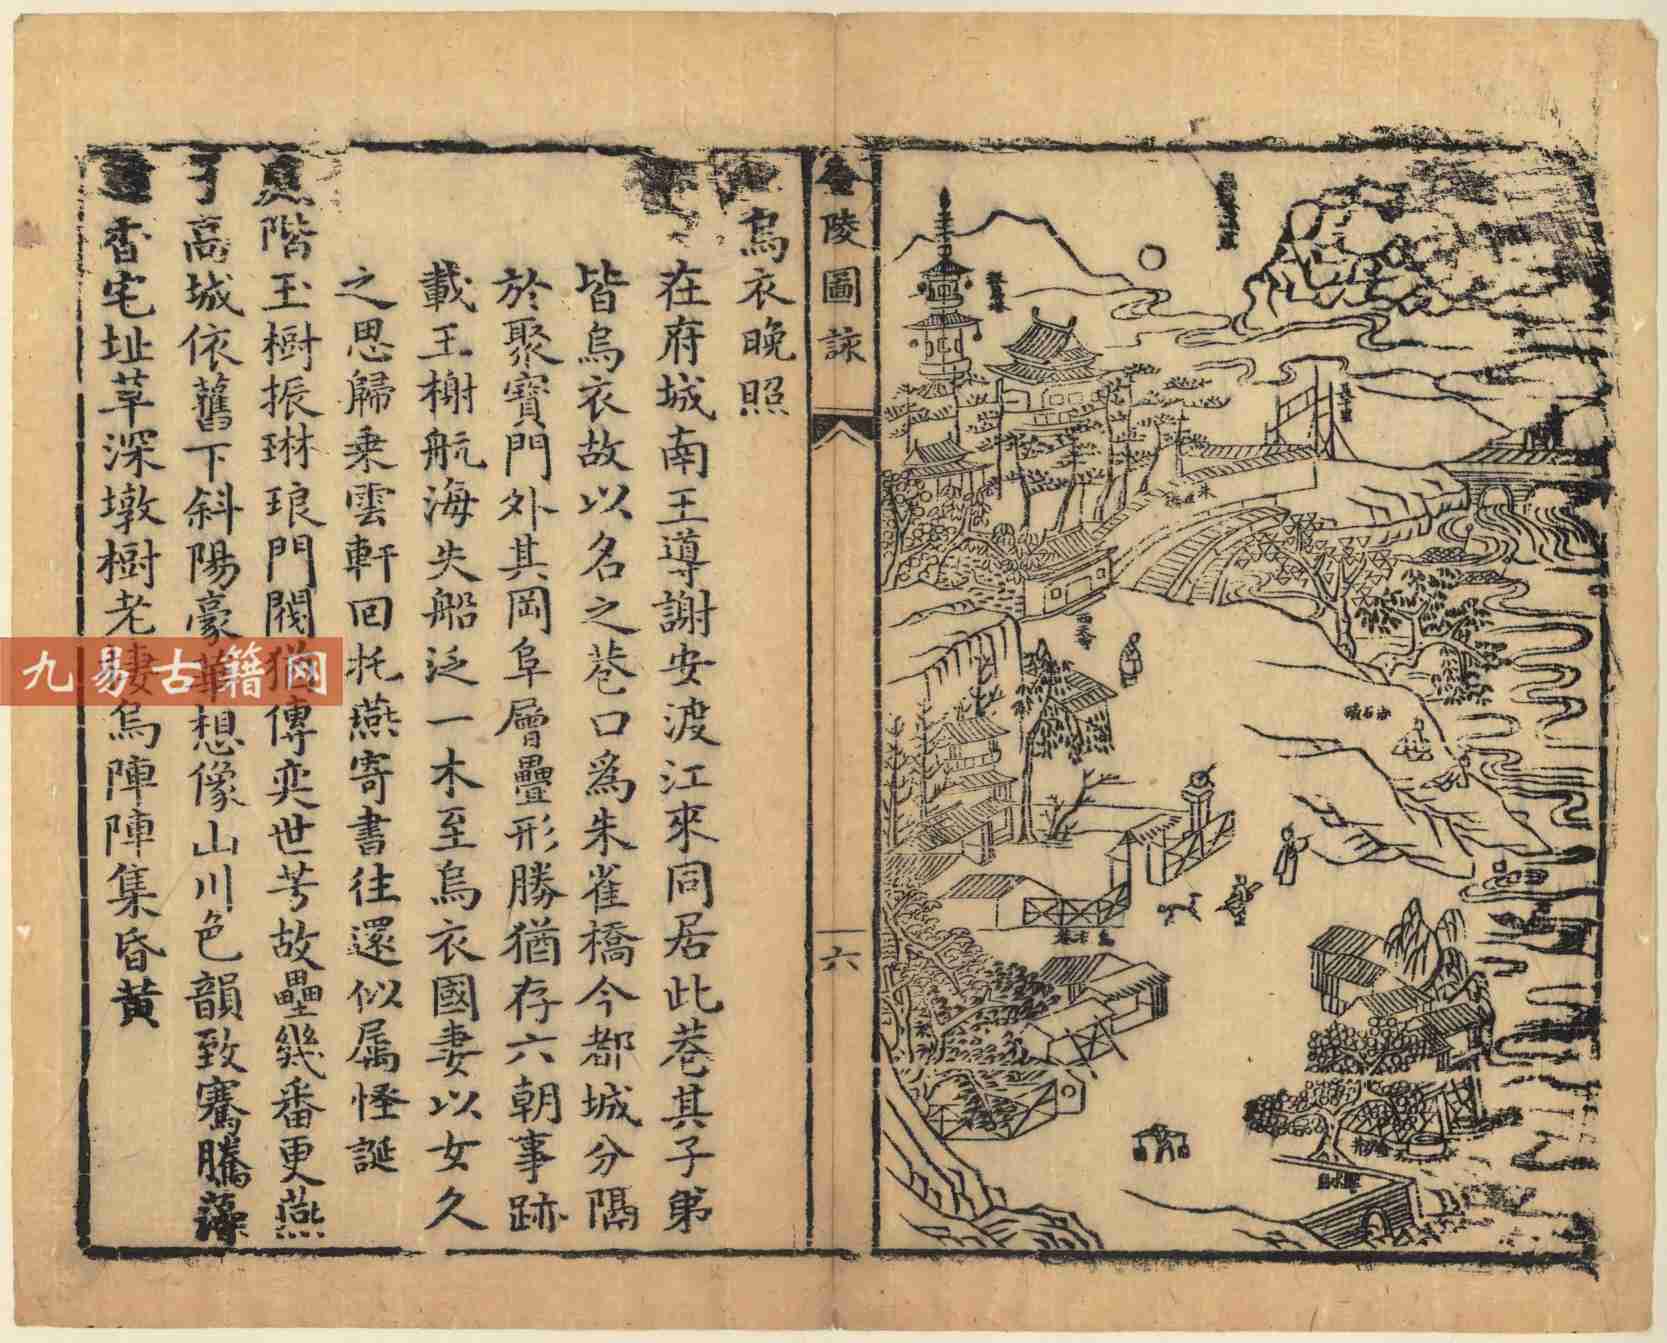 西天寺
金陵圖詠
六
烏衣晚照
在府城南王導謝安渡江來同居此巷其子弟
皆烏衣故以名之巷口爲朱雀橋今都城分隔
於聚寶門外其岡阜層疊形勝猶存六朝事跡
載王榭航海失船泛一木至烏衣國妻以女久
之思歸乗雲軒回托燕寄書往還似属怪誕
階玉樹振琳琅門閥猶傳奕世芳故壘幾番更燕
了高城依舊下斜陽豪華想像山川色韻致騫騰藻
香宅址草深墩樹老棲烏陣陣集昏黃
九易古籍网